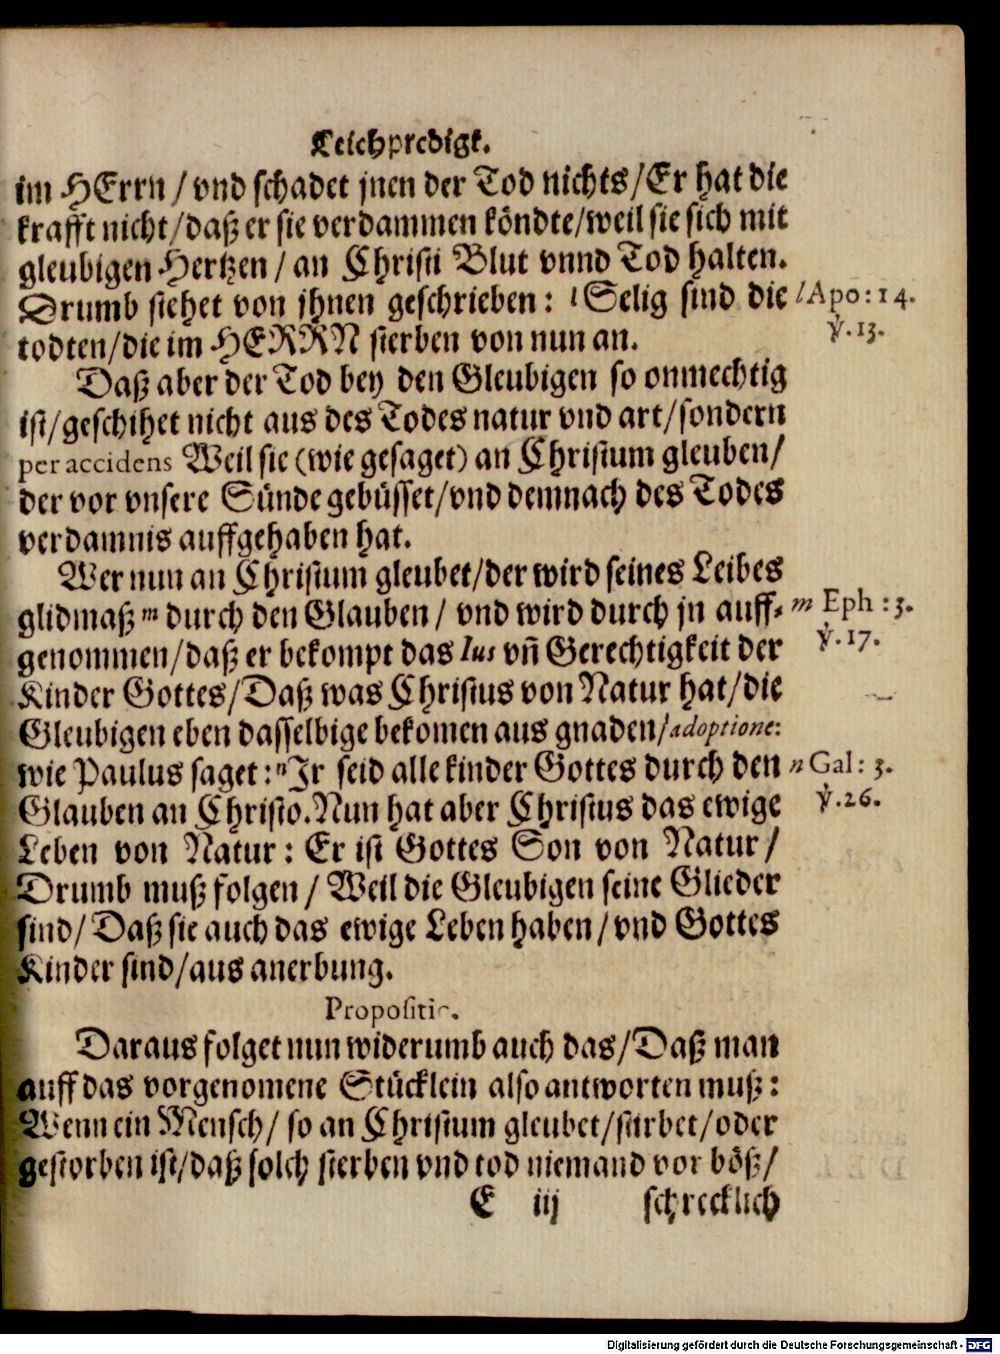 Leichpredigt.
im HErrn / vnd schadet jnen der Tod nichts/Er hat die
krafft nicht/daß er sie verdammen köndte/weil sie sich mit
gleubigen Hertzen / an Christi Blut vnnd Tod halten.
Drumb stehet von jhnen geschrieben: l Selig sind die
todten/die im HERRN sterben von nun an.
l Apo: 14.
v. 13.
Daß aber der Tod bey den Gleubigen so onmechtig
ist/geschihet nicht aus des Todes natur vnd art/sondern
per accidens Weil sie (wie gesaget) an Christum gleuben/
der vor vnsere Sünde gebüsset/vnd demnach des Todes
verdamnis auffgehaben hat.
Wer nun an Christum gleubet/der wird seines Leibes
glidmaß m durch den Glauben / vnd wird durch jn auff-
genommen/daß er bekompt das Ius vñ Gerechtigkeit der
Kinder Gottes/Daß was Christus von Natur hat/die
Gleubigen eben dasselbige bekomen aus gnaden/adoptione:
wie Paulus saget: n Jr seid alle kinder Gottes durch den
Glauben an Christo. Nun hat aber Christus das ewige
Leben von Natur: Er ist Gottes Son von Natur/
Drumb muß folgen / Weil die Gleubigen seine Glieder
sind/ Daß sie auch das ewige Leben haben/ vnd Gottes
Kinder sind/aus anerbung.
m Eph: 3.
v. 17.
n Gal: 3.
v. 26.
Propositio.
Daraus folget nun widerumb auch das/Daß man
auff das vorgenomene Stücklein also antworten muß:
Wenn ein Mensch/ so an Christum gleubet/stirbet/oder
gestorben ist/daß solch sterben vnd tod niemand vor böß/
E iij schrecklich
Digitalisierung gefördert durch die Deutsche Forschungsgemeinschaft - DFG